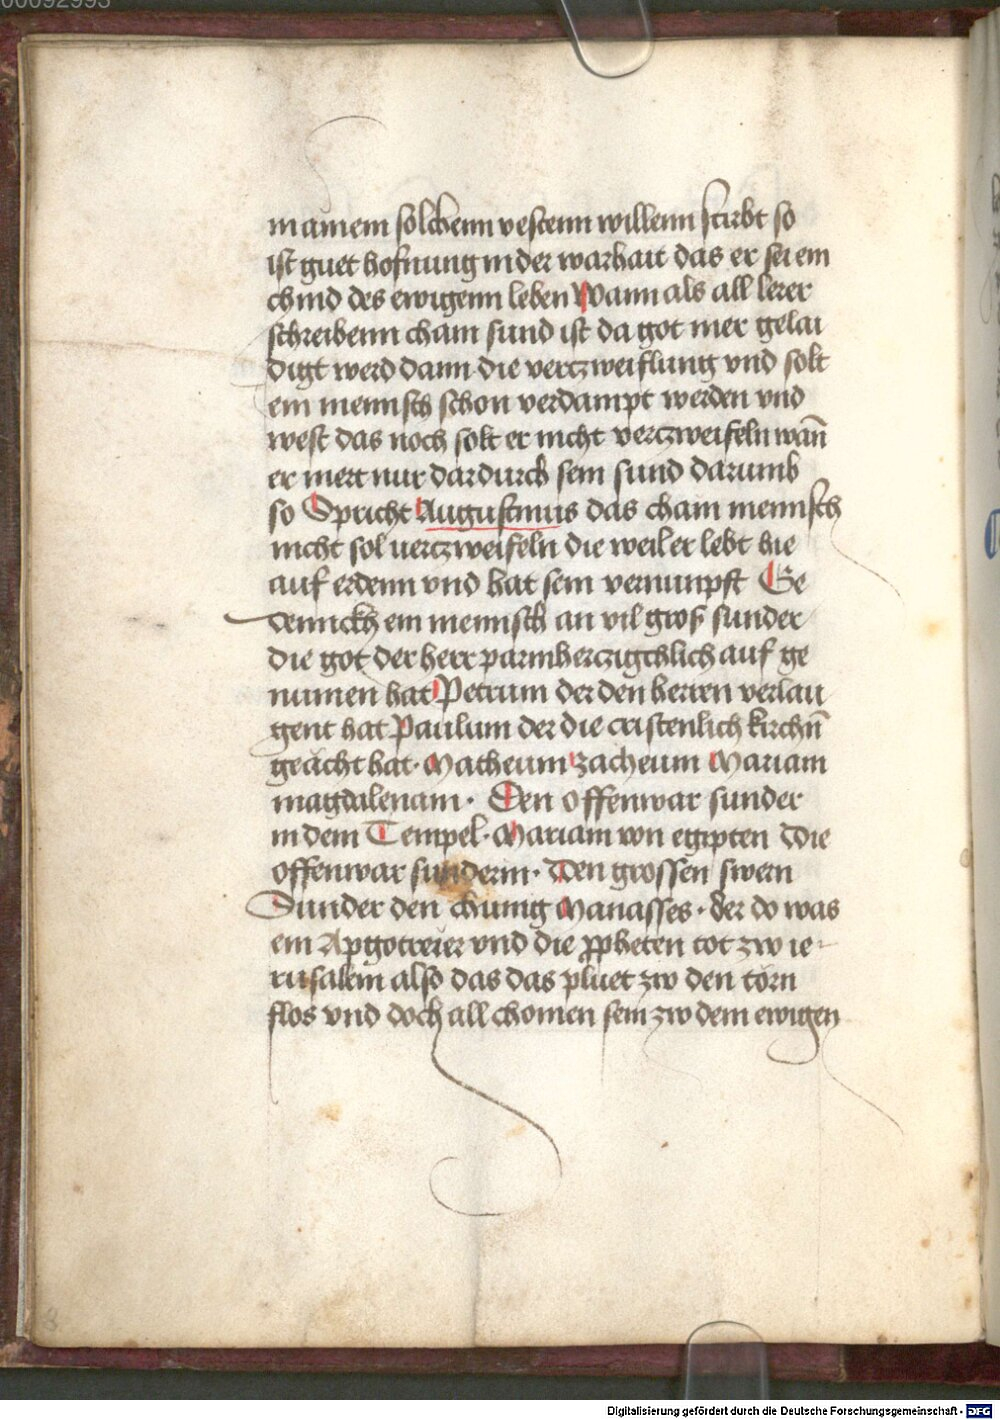 in ainem solchenn vestenn willenn stirbt so
ist guet hofnung in der warhait das er sei ein
chind des ewigenn leben Wann als all lerer
schreibenn cham sund ist da got mer gelai
digt werd dann die verczweiflung vnd solt
ein mennsch schon verdampt werden vnd
west das noch solt er nicht verczweifeln wan̄
er mert nur dardurch sein sund darumb
so Spricht Augustinus das cham mennsch
nicht sol uerczweifeln die weil er lebt hie
auf erdenn vnd hat sein vernunpft Ge
dennckh ein mennsch an vil gros sunder
die got der herr parmherczigchlich auf ge
numen hat Petrum der den herren verlau
gent hat Paulum der die cristenlich kirchn̄
geächt hat· Matheum zacheum Mariam
magdalenam· Den offenwar sunder
in dem Tempel· Mariam von egipten Die
offenwar sunderin· Den grossen swern
Sunder den chunig Manasses· der do was
ein Apgottreier vnd die ꝓpheten tot zw ie-
rusalem also das das pluet zw den törn
flos vnd doch all chomen sein zw dem ewigen
8
00092993
Digitalisierung gefördert durch die Deutsche Forschungsgemeinschaft - DFG